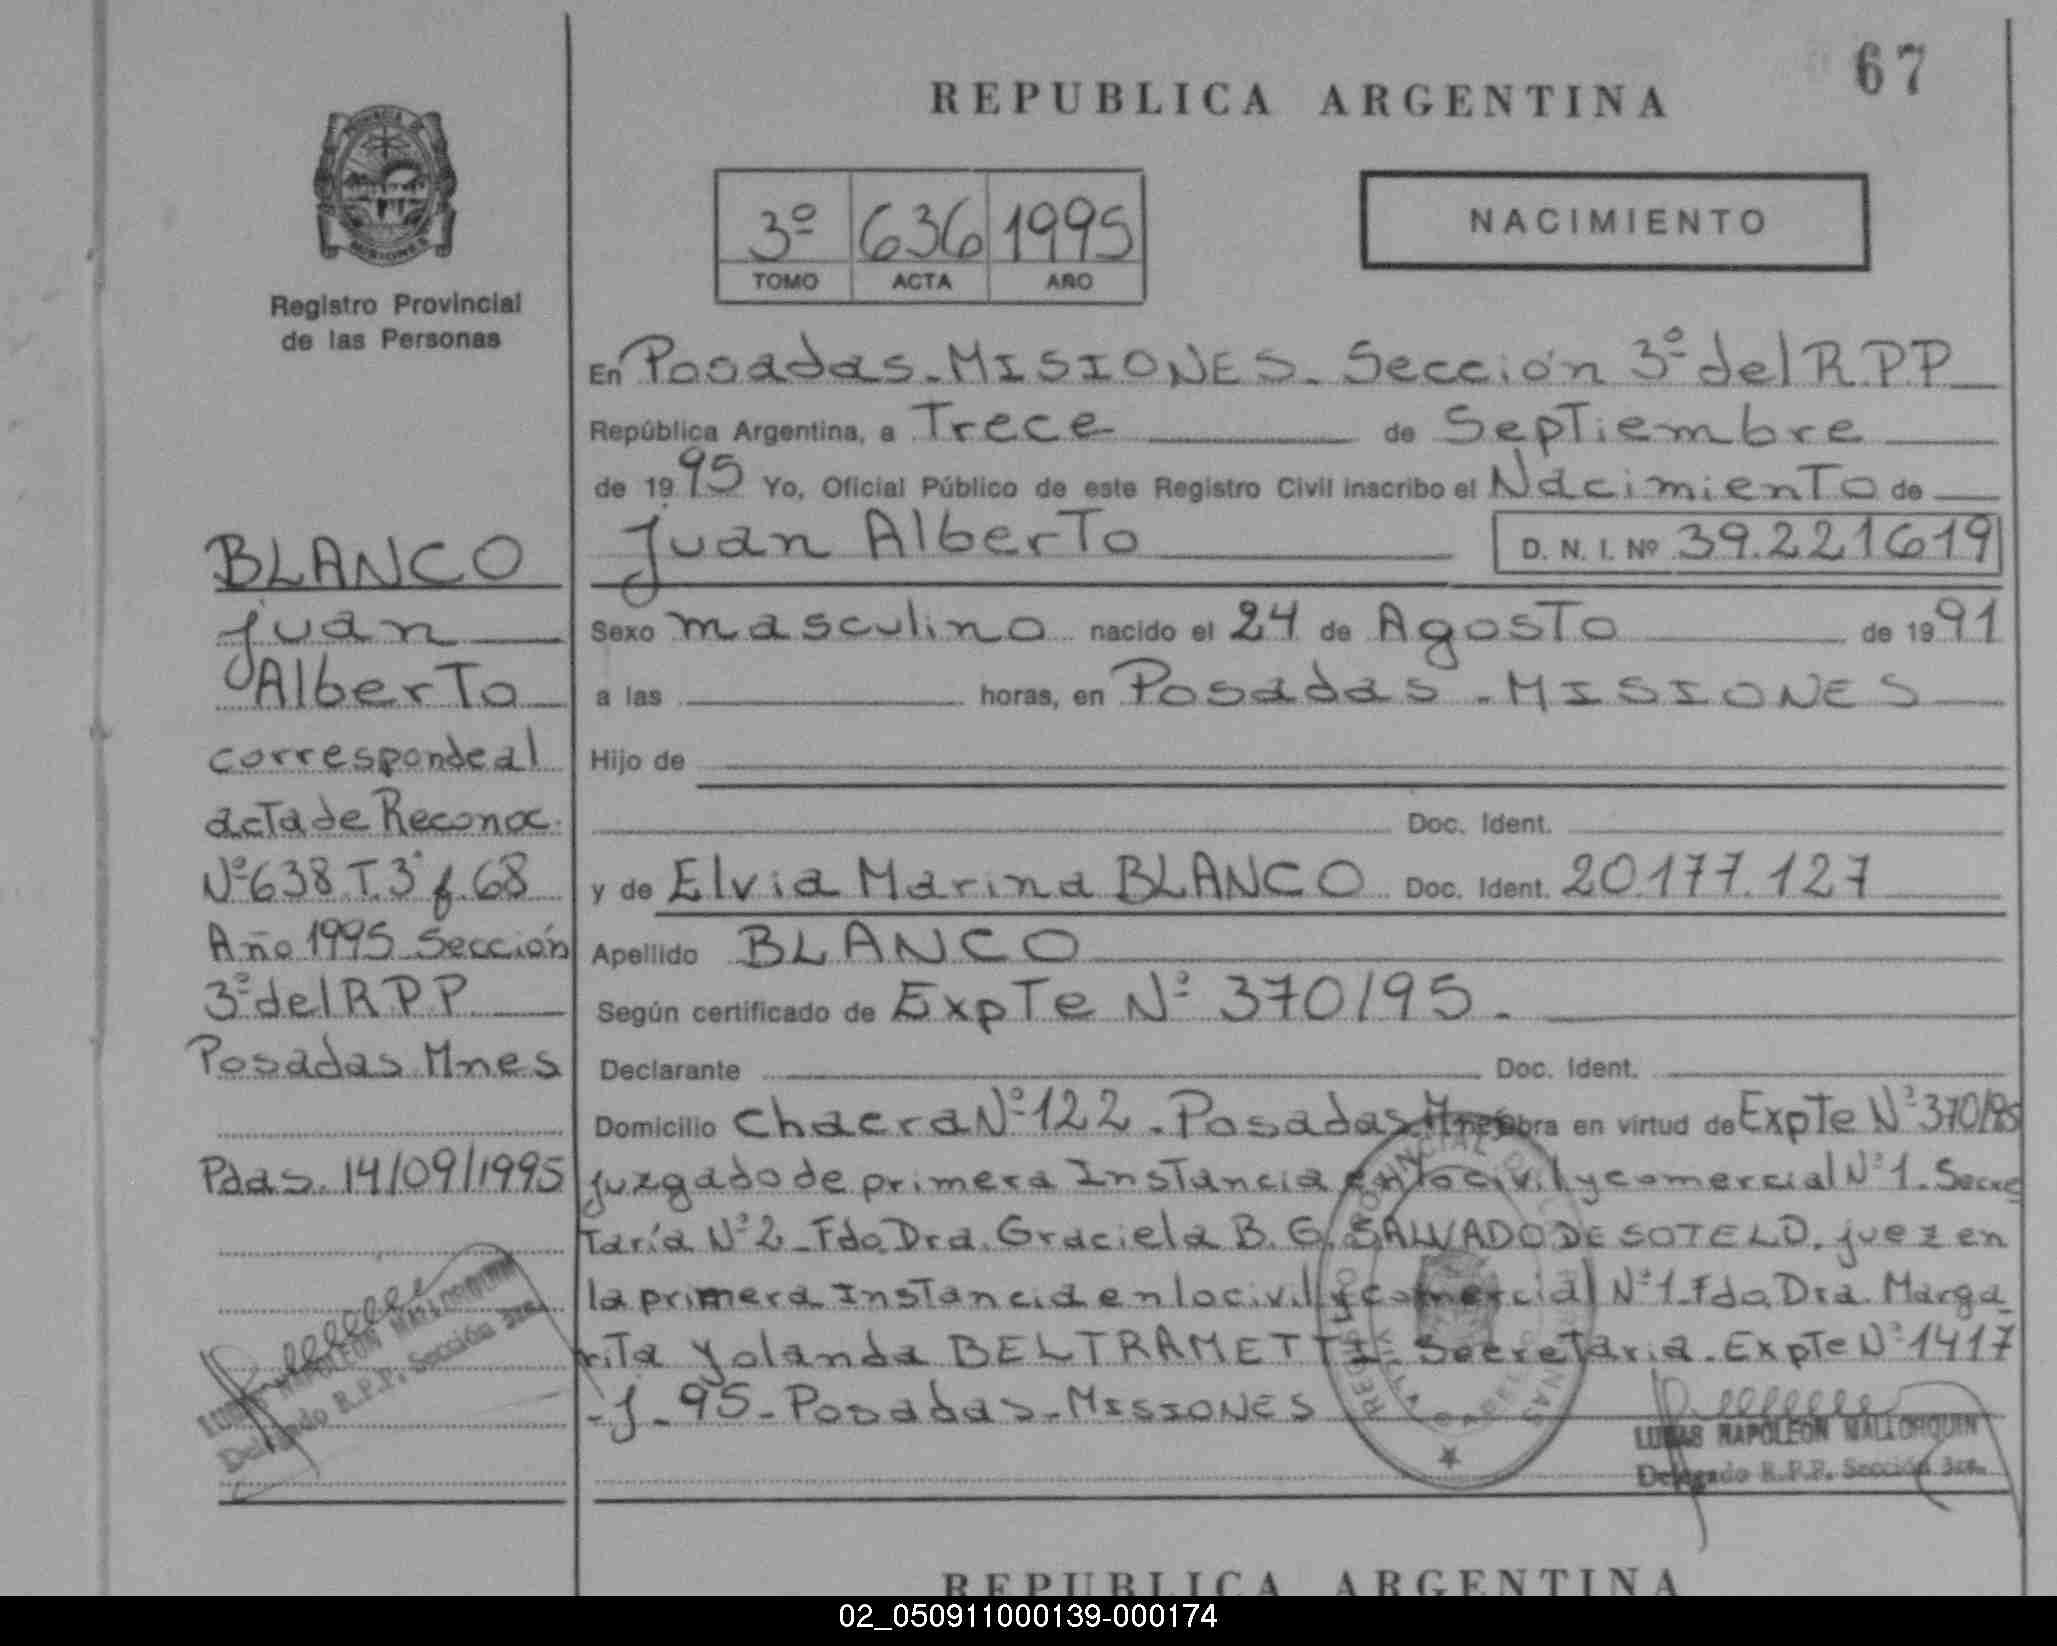 67
REPUBLICA ARGENTINA
3º 636 1995
TOMO ACTA AÑO
NACIMIENTO
PROVINCIA DE
MISIONES
Registro Provincial
de las Personas
BLANCO
Juan
Alberto
corresponde al
acta de Reconoc.
Nº 638 T. 3º f. 68
Año 1995 Sección
3º del R P P
Posadas Mnes
Pdas. 14/09/1995
LUCAS NAPOLEON MALLORQUIN
Delegado R.P.P. Sección 3ra.
En Posadas - MISIONES - Sección 3º del R.P.P
República Argentina, a Trece de Septiembre
de 1995 Yo, Oficial Público de este Registro Civil inscribo el Nacimiento de
Juan Alberto D. N. I. Nº 39.221619
Sexo masculino nacido el 24 de Agosto de 1991
a las horas, en Posadas - MISIONES
Hijo de
Doc. Ident.
y de Elvia Marina BLANCO Doc. Ident. 20.177.127
Apellido BLANCO
Según certificado de Expte Nº 370/95 -
Declarante Doc. Ident.
Domicilio chacra Nº 122 - Posadas Mnes Obra en virtud de Expte Nº 370/95
juzgado de primera Instancia en lo civil y comercial Nº 1 - Secre
taría Nº 2 - Fdo. Dra. Graciela B. G. SALVADO DE SOTELO. juez en
la primera Instancia en lo civil y comercial Nº 1 - Fdo. Dra. Marga
rita Yolanda BELTRAMETTI - Secretaria - Expte Nº 1417
- J - 95 - Posadas - MISIONES
LUCAS NAPOLEON MALLORQUIN
Delegado R.P.P. Sección 3ra.
REPUBLICA ARGENTINA
02_050911000139-000174